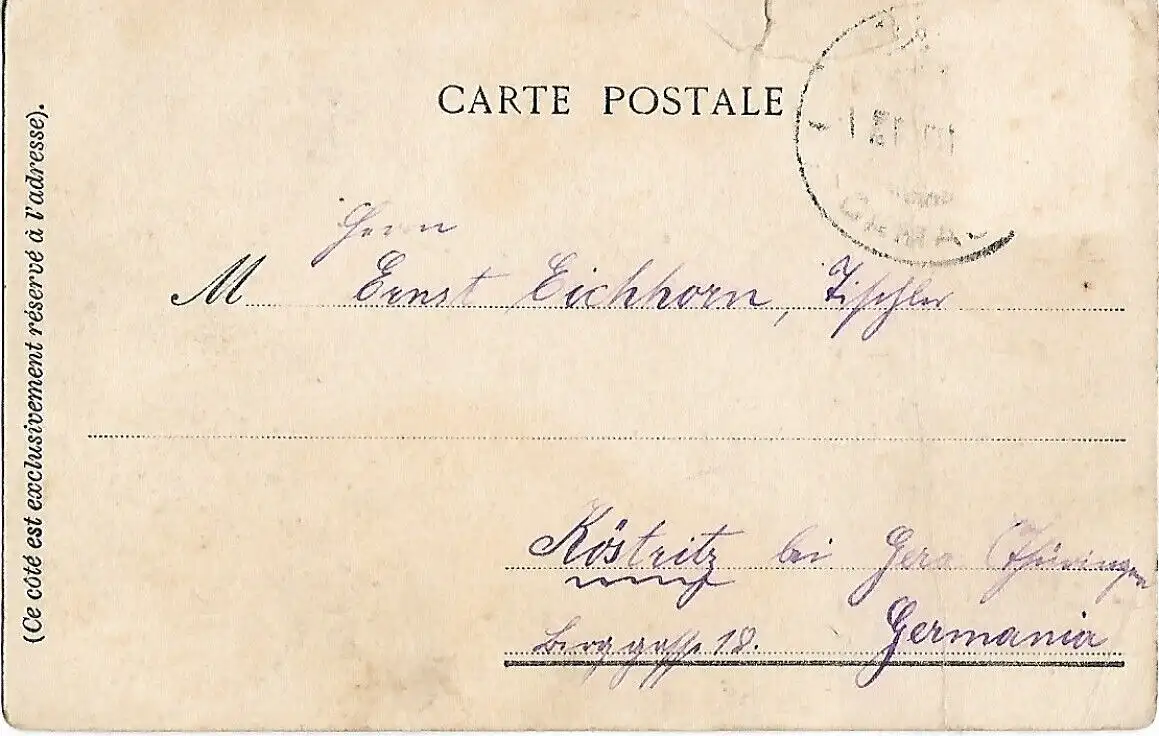 CARTE POSTALE
(Ce côté est exclusivement réservé à l'adresse).
Herrn
M Ernst Eichhorn, Tischler
Köstritz bei Gera (Thüringen
Berggasse 18. Germania